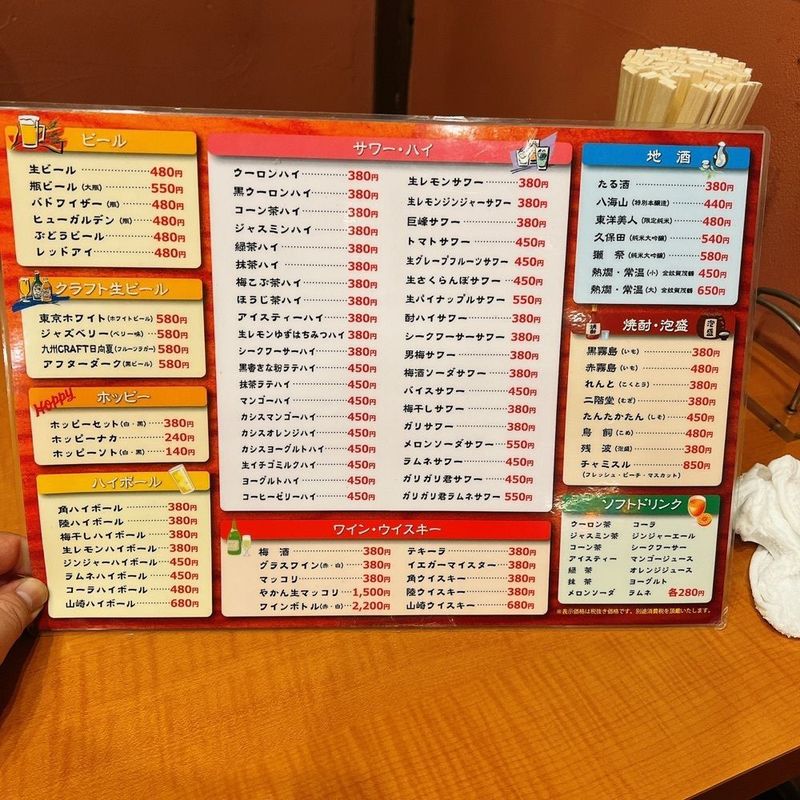 ビール
生ビール 480円
瓶ビール (大瓶) 550円
バドワイザー (瓶) 480円
ヒューガルデン (瓶) 480円
ぶどうビール 480円
レッドアイ 480円
クラフト生ビール
東京ホワイト (ホワイトビール) 580円
ジャズベリー (ベリー味) 580円
九州CRAFT日向夏 (フルーツラガー) 580円
アフターダーク (黒ビール) 580円
Hoppy ホッピー
ホッピーセット (白・黒) 380円
ホッピーナカ 240円
ホッピーソト (白・黒) 140円
ハイボール
角ハイボール 380円
陸ハイボール 380円
梅干しハイボール 380円
生レモンハイボール 380円
ジンジャーハイボール 450円
ラムネハイボール 450円
コーラハイボール 480円
山崎ハイボール 680円
サワー・ハイ
ウーロンハイ 380円
黒ウーロンハイ 380円
コーン茶ハイ 380円
ジャスミンハイ 380円
緑茶ハイ 380円
抹茶ハイ 380円
梅こぶ茶ハイ 380円
ほうじ茶ハイ 380円
アイスティーハイ 380円
生レモンゆずはちみつハイ 380円
シークワーサーハイ 380円
黒蜜きな粉ラテハイ 450円
抹茶ラテハイ 450円
マンゴーハイ 450円
カシスマンゴーハイ 450円
カシスオレンジハイ 450円
カシスヨーグルトハイ 450円
生イチゴミルクハイ 450円
ヨーグルトハイ 450円
コーヒーゼリーハイ 450円
生レモンサワー 380円
生レモンジンジャーサワー 380円
巨峰サワー 380円
トマトサワー 450円
生グレープフルーツサワー 450円
生さくらんぼサワー 450円
生パイナップルサワー 550円
酎ハイサワー 380円
シークワーサーサワー 380円
男梅サワー 380円
梅酒ソーダサワー 380円
バイスサワー 380円
梅干しサワー 380円
ガリサワー 380円
メロンソーダサワー 550円
ラムネサワー 450円
ガリガリ君サワー 450円
ガリガリ君ラムネサワー 550円
ワイン・ウイスキー
梅酒 380円
グラスワイン (赤・白) 380円
マッコリ 380円
やかん生マッコリ 1,500円
ワインボトル (赤・白) 2,200円
テキーラ 380円
イエガーマイスター 380円
角ウイスキー 380円
陸ウイスキー 380円
山崎ウイスキー 680円
地酒
たる酒 380円
八海山 (特別本醸造) 440円
東洋美人 (限定純米) 480円
久保田 (純米大吟醸) 540円
獺祭 (純米大吟醸) 580円
熱燗・常温 (小) 金紋賀茂鶴 450円
熱燗・常温 (大) 金紋賀茂鶴 650円
焼酎・泡盛
黒霧島 (いも) 380円
赤霧島 (いも) 480円
れんと (こくとう) 380円
二階堂 (むぎ) 380円
たんたかたん (しそ) 450円
鳥飼 (こめ) 480円
残波 (泡盛) 380円
チャミスル 850円
(フレッシュ・ピーチ・マスカット)
ソフトドリンク
ウーロン茶 コーラ
ジャスミン茶 ジンジャーエール
コーン茶 シークワーサー
アイスティー マンゴージュース
緑茶 オレンジジュース
抹茶 ヨーグルト
メロンソーダ ラムネ 各280円
※表示価格は税抜き価格です。別途消費税を頂戴いたします。